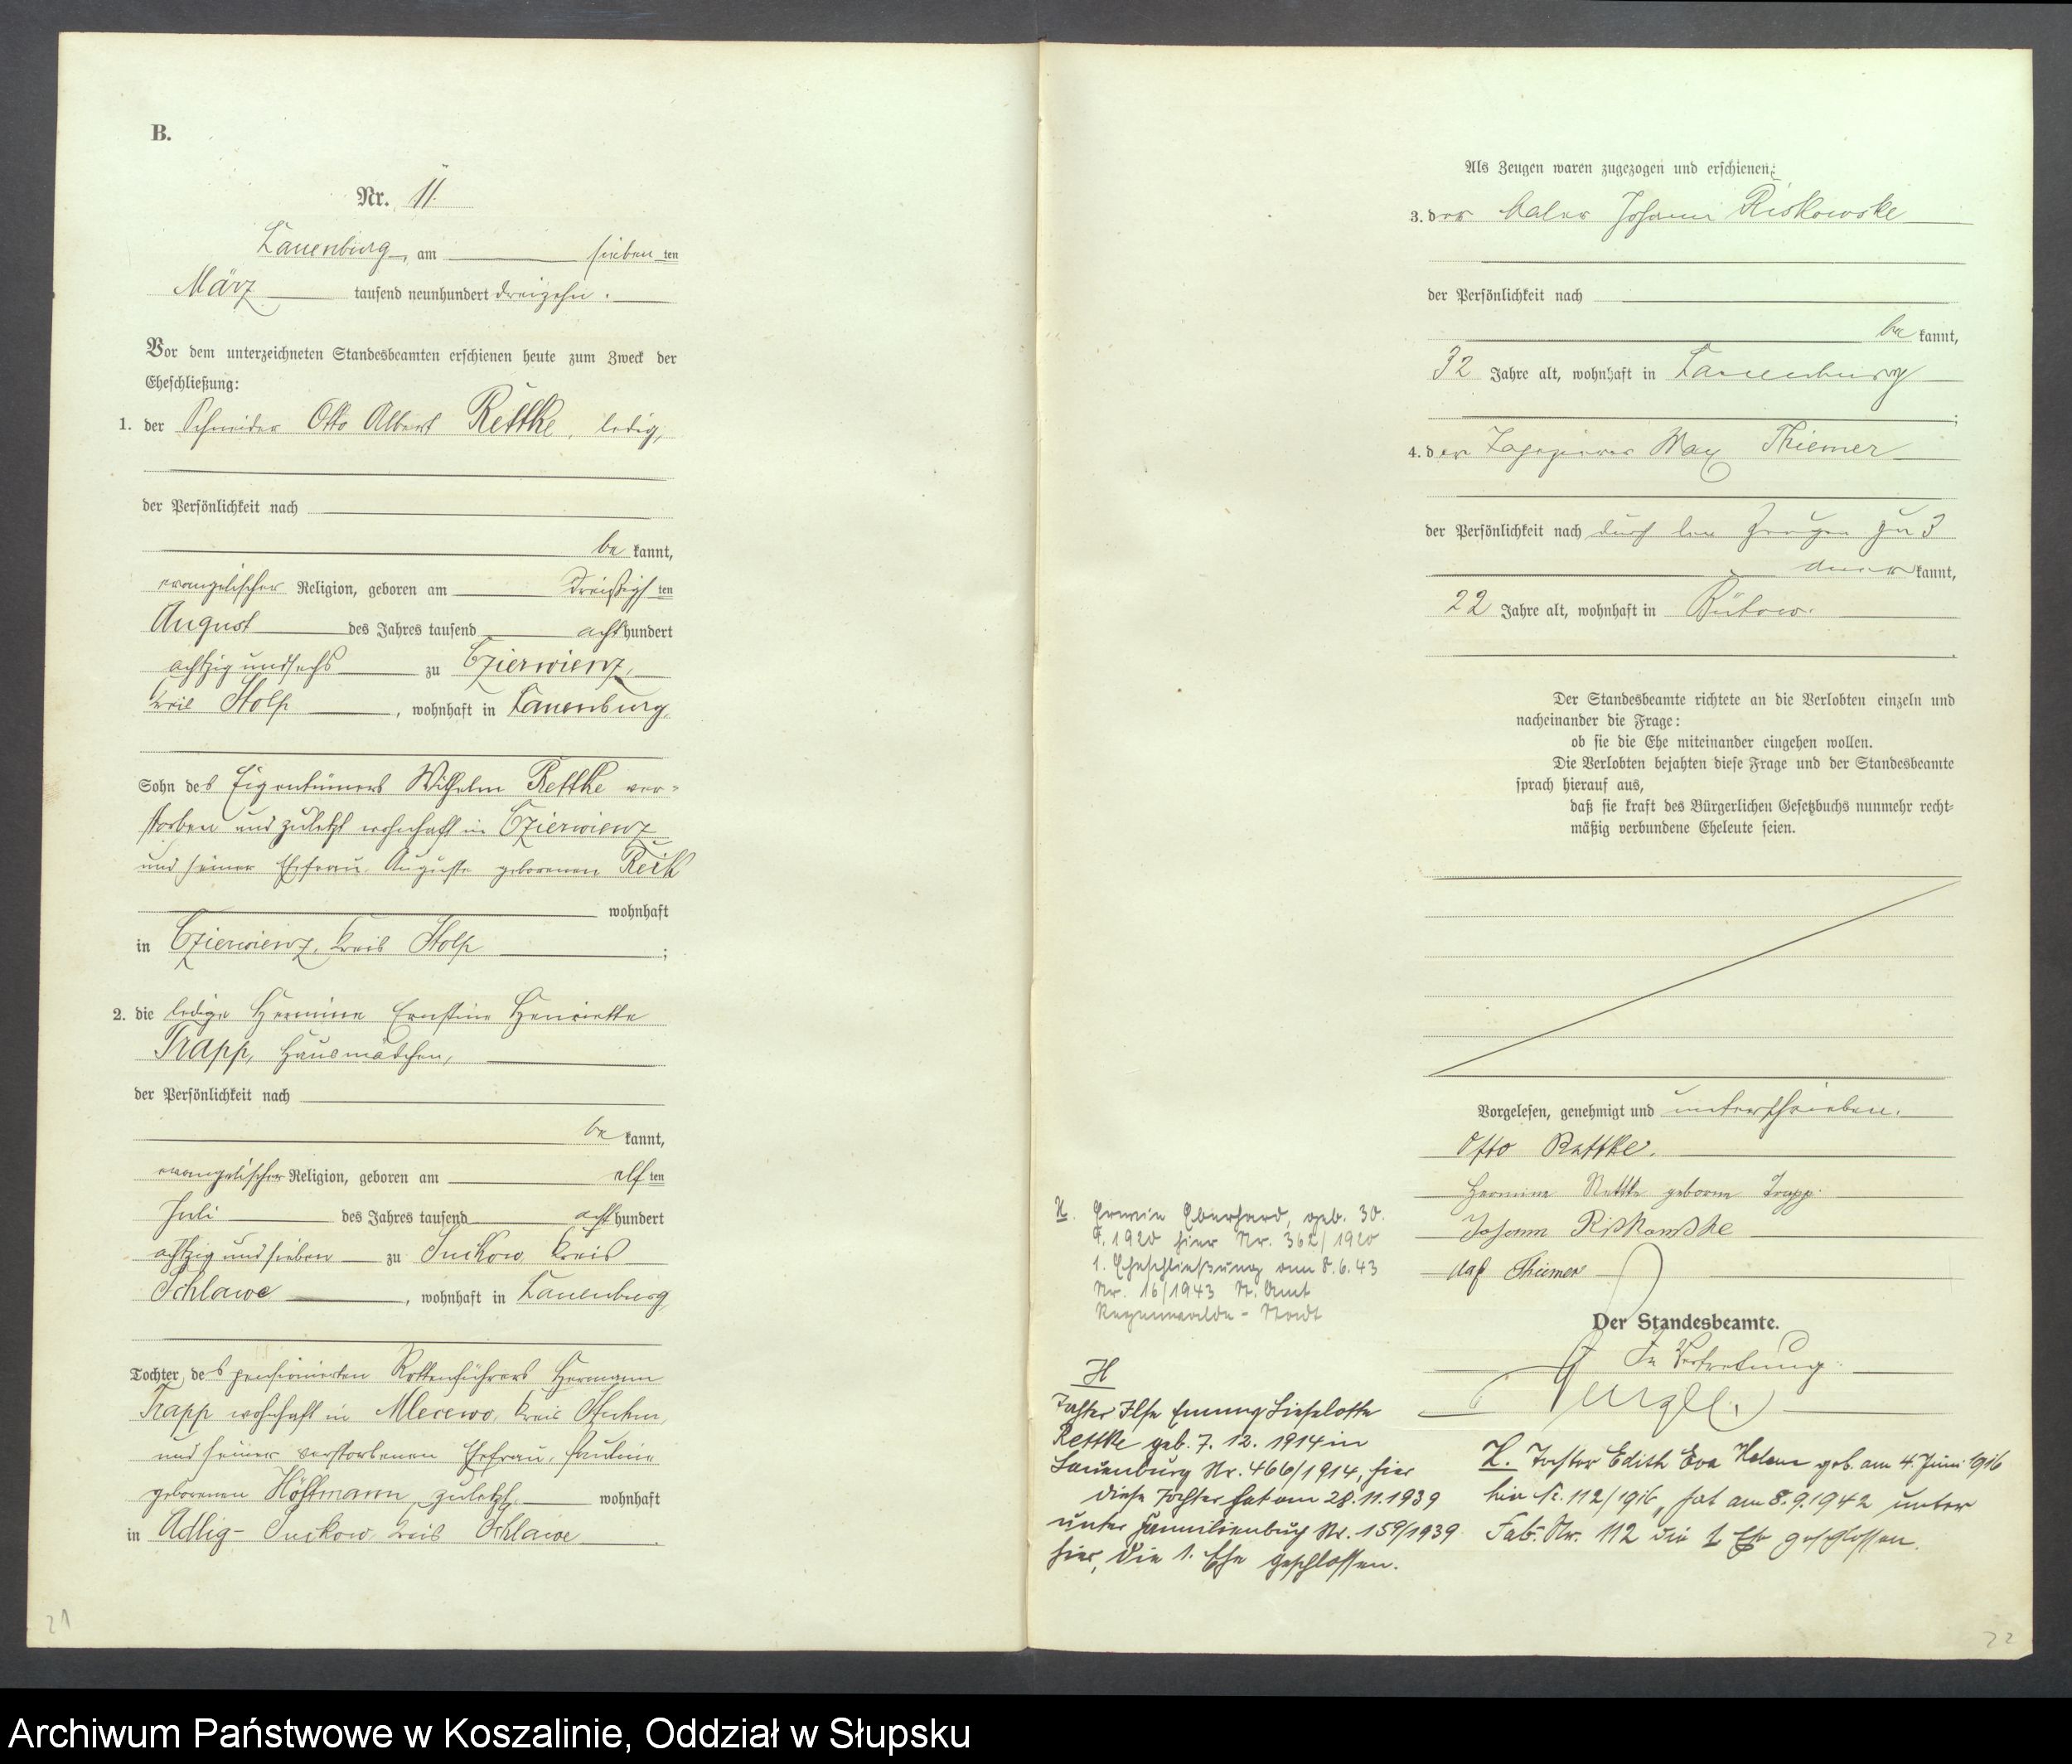 B.
Nr. 11.
Lauenburg, am sieben ten
März tausend neunhundert dreizehn.
Vor dem unterzeichneten Standesbeamten erschienen heute zum Zweck der
Eheschließung:
1. der Schneider Otto Albert Rettke, ledig,
der Persönlichkeit nach
be kannt,
evangelischer Religion, geboren am dreißigs ten
August des Jahres tausend acht hundert
achtzig und sechs zu Czierwienz,
Kreis Stolp, wohnhaft in Lauenburg,
Sohn des Eigentümers Wilhelm Rettke ver=
storben und zuletzt wohnhaft in Czierwienz
und seiner Ehefrau Auguste geborenen
wohnhaft
in Czierwienz, Kreis Stolp;
2. die ledige Hermine Ernstine Henriette
Trapp, Hausmädchen,
der Persönlichkeit nach
be kannt,
evangelischer Religion, geboren am elf ten
Juli des Jahres tausend acht hundert
achtzig und sieben zu Suckow, Kreis
Schlawe, wohnhaft in Lauenburg
Tochter des pensionierten Rottenführers Hermann
Trapp wohnhaft in Mlecewo, Kreis Stuhm,
und seiner verstorbenen Ehefrau, Pauline
geborenen zuletzt wohnhaft
in Adlig-Suckow, Kreis Schlawe.
21
Als Zeugen waren zugezogen und erschienen:
3. der Maler Johann Riskowske
der Persönlichkeit nach
be kannt,
32 Jahre alt, wohnhaft in Lauenburg
;
4. der Tapezierer Max Thiemer
der Persönlichkeit nach durch den Zeugen zu 3
aner kannt,
22 Jahre alt, wohnhaft in Bütow.
Der Standesbeamte richtete an die Verlobten einzeln und
nacheinander die Frage:
ob sie die Ehe miteinander eingehen wollen.
Die Verlobten bejahten diese Frage und der Standesbeamte
sprach hierauf aus,
daß sie kraft des Bürgerlichen Gesetzbuchs nunmehr recht=
mäßig verbundene Eheleute seien.
Vorgelesen, genehmigt und unterschrieben.
Otto Rettke.
Hermine Rettke geborne Trapp.
Johann
Max Thiemer
Der Standesbeamte.
In Vertretung.
K. Erwin Eberhard, geb. 30.
9.1920 hier Nr. 362/1920
1. Eheschließung am 8.6.43
Nr. 16/1943 St. Amt
Regenwalde - Stadt
H
Tochter Ilse Emmy Lieselotte
Rettke geb. 7. 12. 1914 in
Lauenburg Nr. 466/1914, hier
diese Tochter hat am 28.11.1939
unter Familienbuch Nr. 159/1939
hier, die 1. Ehe geschlossen.
K. Tochter Edith Eva Helene geb. am 4. Juni 1916
hier Nr. 112/1916, hat am 8.9.1942 unter
Fab. Nr. 112 die 1. Ehe geschlossen.
22
Archiwum Państwowe w Koszalinie, Oddział w Słupsku